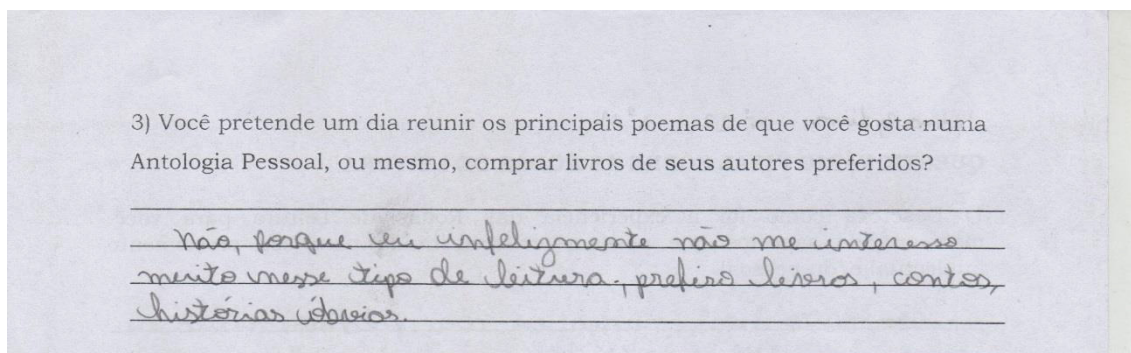 3) Você pretende um dia reunir os principais poemas de que você gosta numa
Antologia Pessoal, ou mesmo, comprar livros de seus autores preferidos?
Não, porque eu infelizmente não me interesso
muito nesse tipo de leitura, prefiro livros, contos,
histórias óbvias.